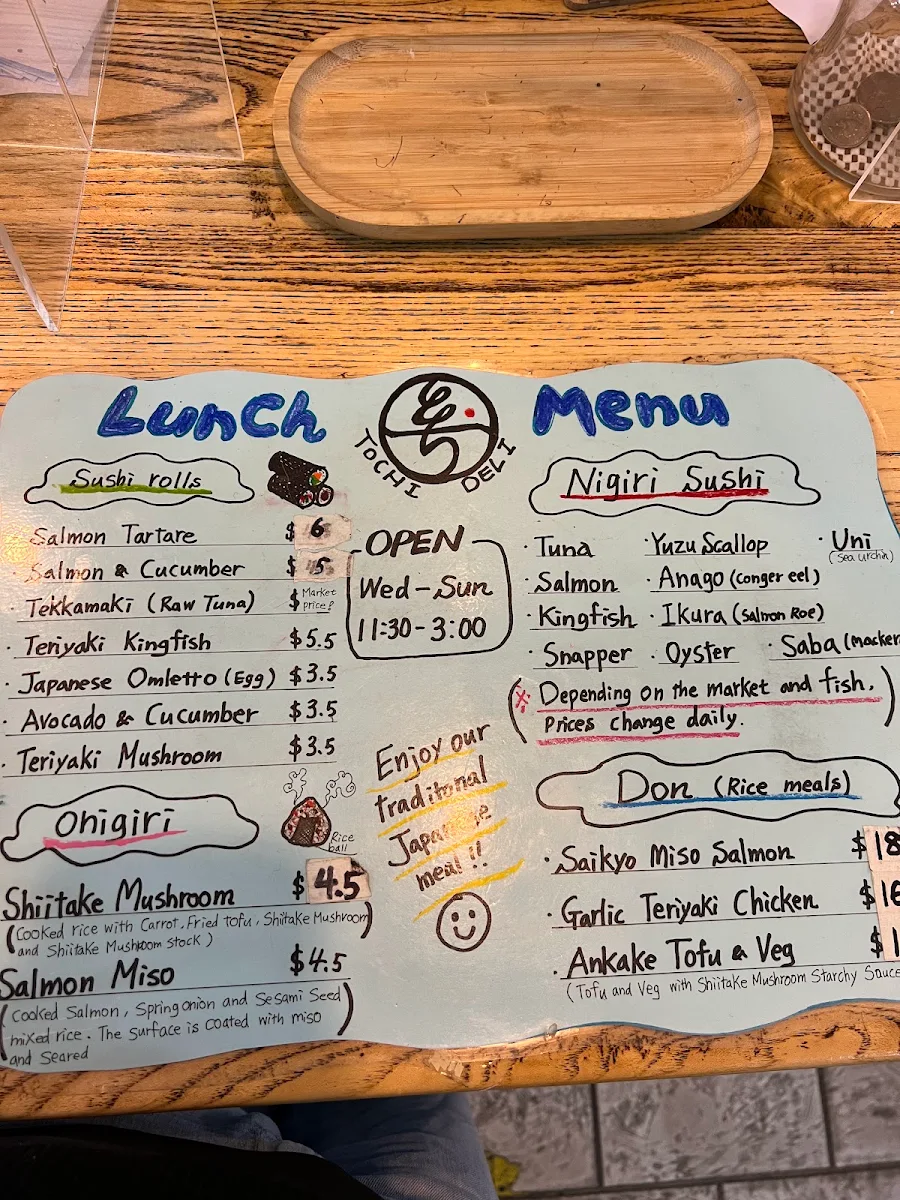 Lunch Menu
TOCHI DELI
Sushi rolls
Salmon Tartare $6
· Salmon & Cucumber $
· Tekkamaki (Raw Tuna) $ Market price!
· Teriyaki Kingfish $5.5
· Japanese Omletto (Egg) $3.5
· Avocado & Cucumber $3.5
· Teriyaki Mushroom $3.5
Ohigiri
Rice
ball
Shiitake Mushroom $4.5
(Cooked rice with Carrot, Fried tofu, Shiitake Mushroom
and Shiitake Mushroom stock)
Salmon Miso $4.5
(Cooked Salmon, Spring onion and Sesami Seed
mixed rice. The surface is coated with miso
and Seared)
OPEN
Wed - Sun
11:30 - 3:00
Enjoy our
traditonal
Japanese
meal!!
Nigiri Sushi
· Tuna · Yuzu Scallop · Uni
(Sea urchin)
· Salmon · Anago (conger eel)
· Kingfish · Ikura (Salmon Roe)
· Snapper · Oyster · Saba (Macker
(※ Depending on the market and fish.
Prices change daily.)
Don (Rice meals)
· Saikyo Miso Salmon $18
· Garlic Teriyaki Chicken $16
· Ankake Tofu & Veg $1
(Tofu and Veg with Shiitake Mushroom Starchy Sauce